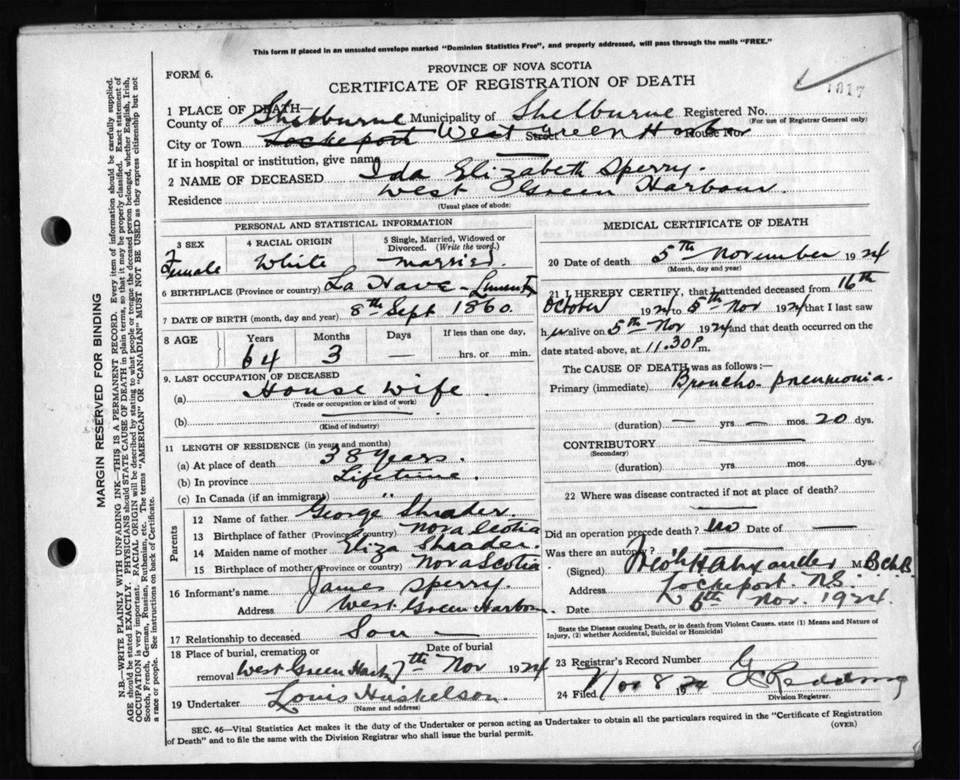 This form if placed in an unsealed envelope marked "Dominion Statistics Free", and properly addressed, will pass through the mails "FREE."
PROVINCE OF NOVA SCOTIA
FORM 6.
CERTIFICATE OF REGISTRATION OF DEATH
1017
1 PLACE OF DEATH—
County of Shelburne Municipality of Shelburne Registered No.
(For use of Registrar General only)
City or Town Lockeport West Green Harbor Street House No.
If in hospital or institution, give name —
2 NAME OF DECEASED Ida Elizabeth Sperry.
Residence West Green Harbour.
(Usual place of abode)
PERSONAL AND STATISTICAL INFORMATION
3 SEX Female
4 RACIAL ORIGIN White
5 Single, Married, Widowed or Divorced. (Write the word.) Married.
6 BIRTHPLACE (Province or country) La Have - Lunen
7 DATE OF BIRTH (month, day and year) 8th Sept 1860.
8 AGE Years 64 Months 3 Days — If less than one day, hrs. or min.
9. LAST OCCUPATION OF DECEASED
(a) House wife.
(Trade or occupation or kind of work)
(b) —
(Kind of industry)
11 LENGTH OF RESIDENCE (in years and months)
(a) At place of death 38 years.
(b) In province Lifetime.
(c) In Canada (if an immigrant) "
Parents
12 Name of father George Shrader.
13 Birthplace of father (Province or country) Nova Scotia
14 Maiden name of mother Eliza Shrader.
15 Birthplace of mother (Province or country) Nova Scotia
16 Informant's name James Sperry.
Address West Green Harbour.
17 Relationship to deceased Son —
18 Place of burial, cremation or removal West Green Harbor Date of burial 7th Nov 1924
19 Undertaker Louis
(Name and address)
MEDICAL CERTIFICATE OF DEATH
20 Date of death 5th November 1924
(Month, day and year)
21 I HEREBY CERTIFY, that I attended deceased from 16th
October 1924 to 5th Nov 1924 that I last saw
her alive on 5th Nov 1924 and that death occurred on
date stated above, at 11.30 P. m.
The CAUSE OF DEATH was as follows:
Primary (immediate) Broncho-pneumonia.
(duration) — yrs. — mos. 20 dys.
CONTRIBUTORY —
(Secondary)
(duration) yrs. mos. dys.
22 Where was disease contracted if not at place of death? —
Did an operation precede death? No Date of —
Was there an autopsy? —
(Signed) Alexander M.B. Ch.B.
Address Lockeport N.S.
Date 6th Nov. 1924.
State the Disease causing Death, or in death from Violent Causes. state (1) Means and Nature of Injury, (2) whether Accidental, Suicidal or Homicidal
23 Registrar's Record Number
24 Filed Nov 8 1924 G Redding
Division Registrar.
SEC. 46—Vital Statistics Act makes it the duty of the Undertaker or person acting as Undertaker to obtain all the particulars required in the "Certificate of Registration
of Death" and to file the same with the Division Registrar who shall issue the burial permit.
(OVER)
MARGIN RESERVED FOR BINDING
N.B.—WRITE PLAINLY WITH UNFADING INK—THIS IS A PERMANENT RECORD. Every item of information should be carefully supplied.
AGE should be stated EXACTLY. PHYSICIANS should STATE CAUSE OF DEATH in plain terms, so that it may be properly classified. Exact statement of
OCCUPATION is very important. RACIAL ORIGIN will be described by stating to what people or tongue the deceased person belonged, whether English, Irish,
Scotch, French, German, Russian, Ruthenian, etc. The terms "AMERICAN" OR "CANADIAN" MUST NOT BE USED as they express citizenship but not
a race or people. See instructions on back of Certificate.